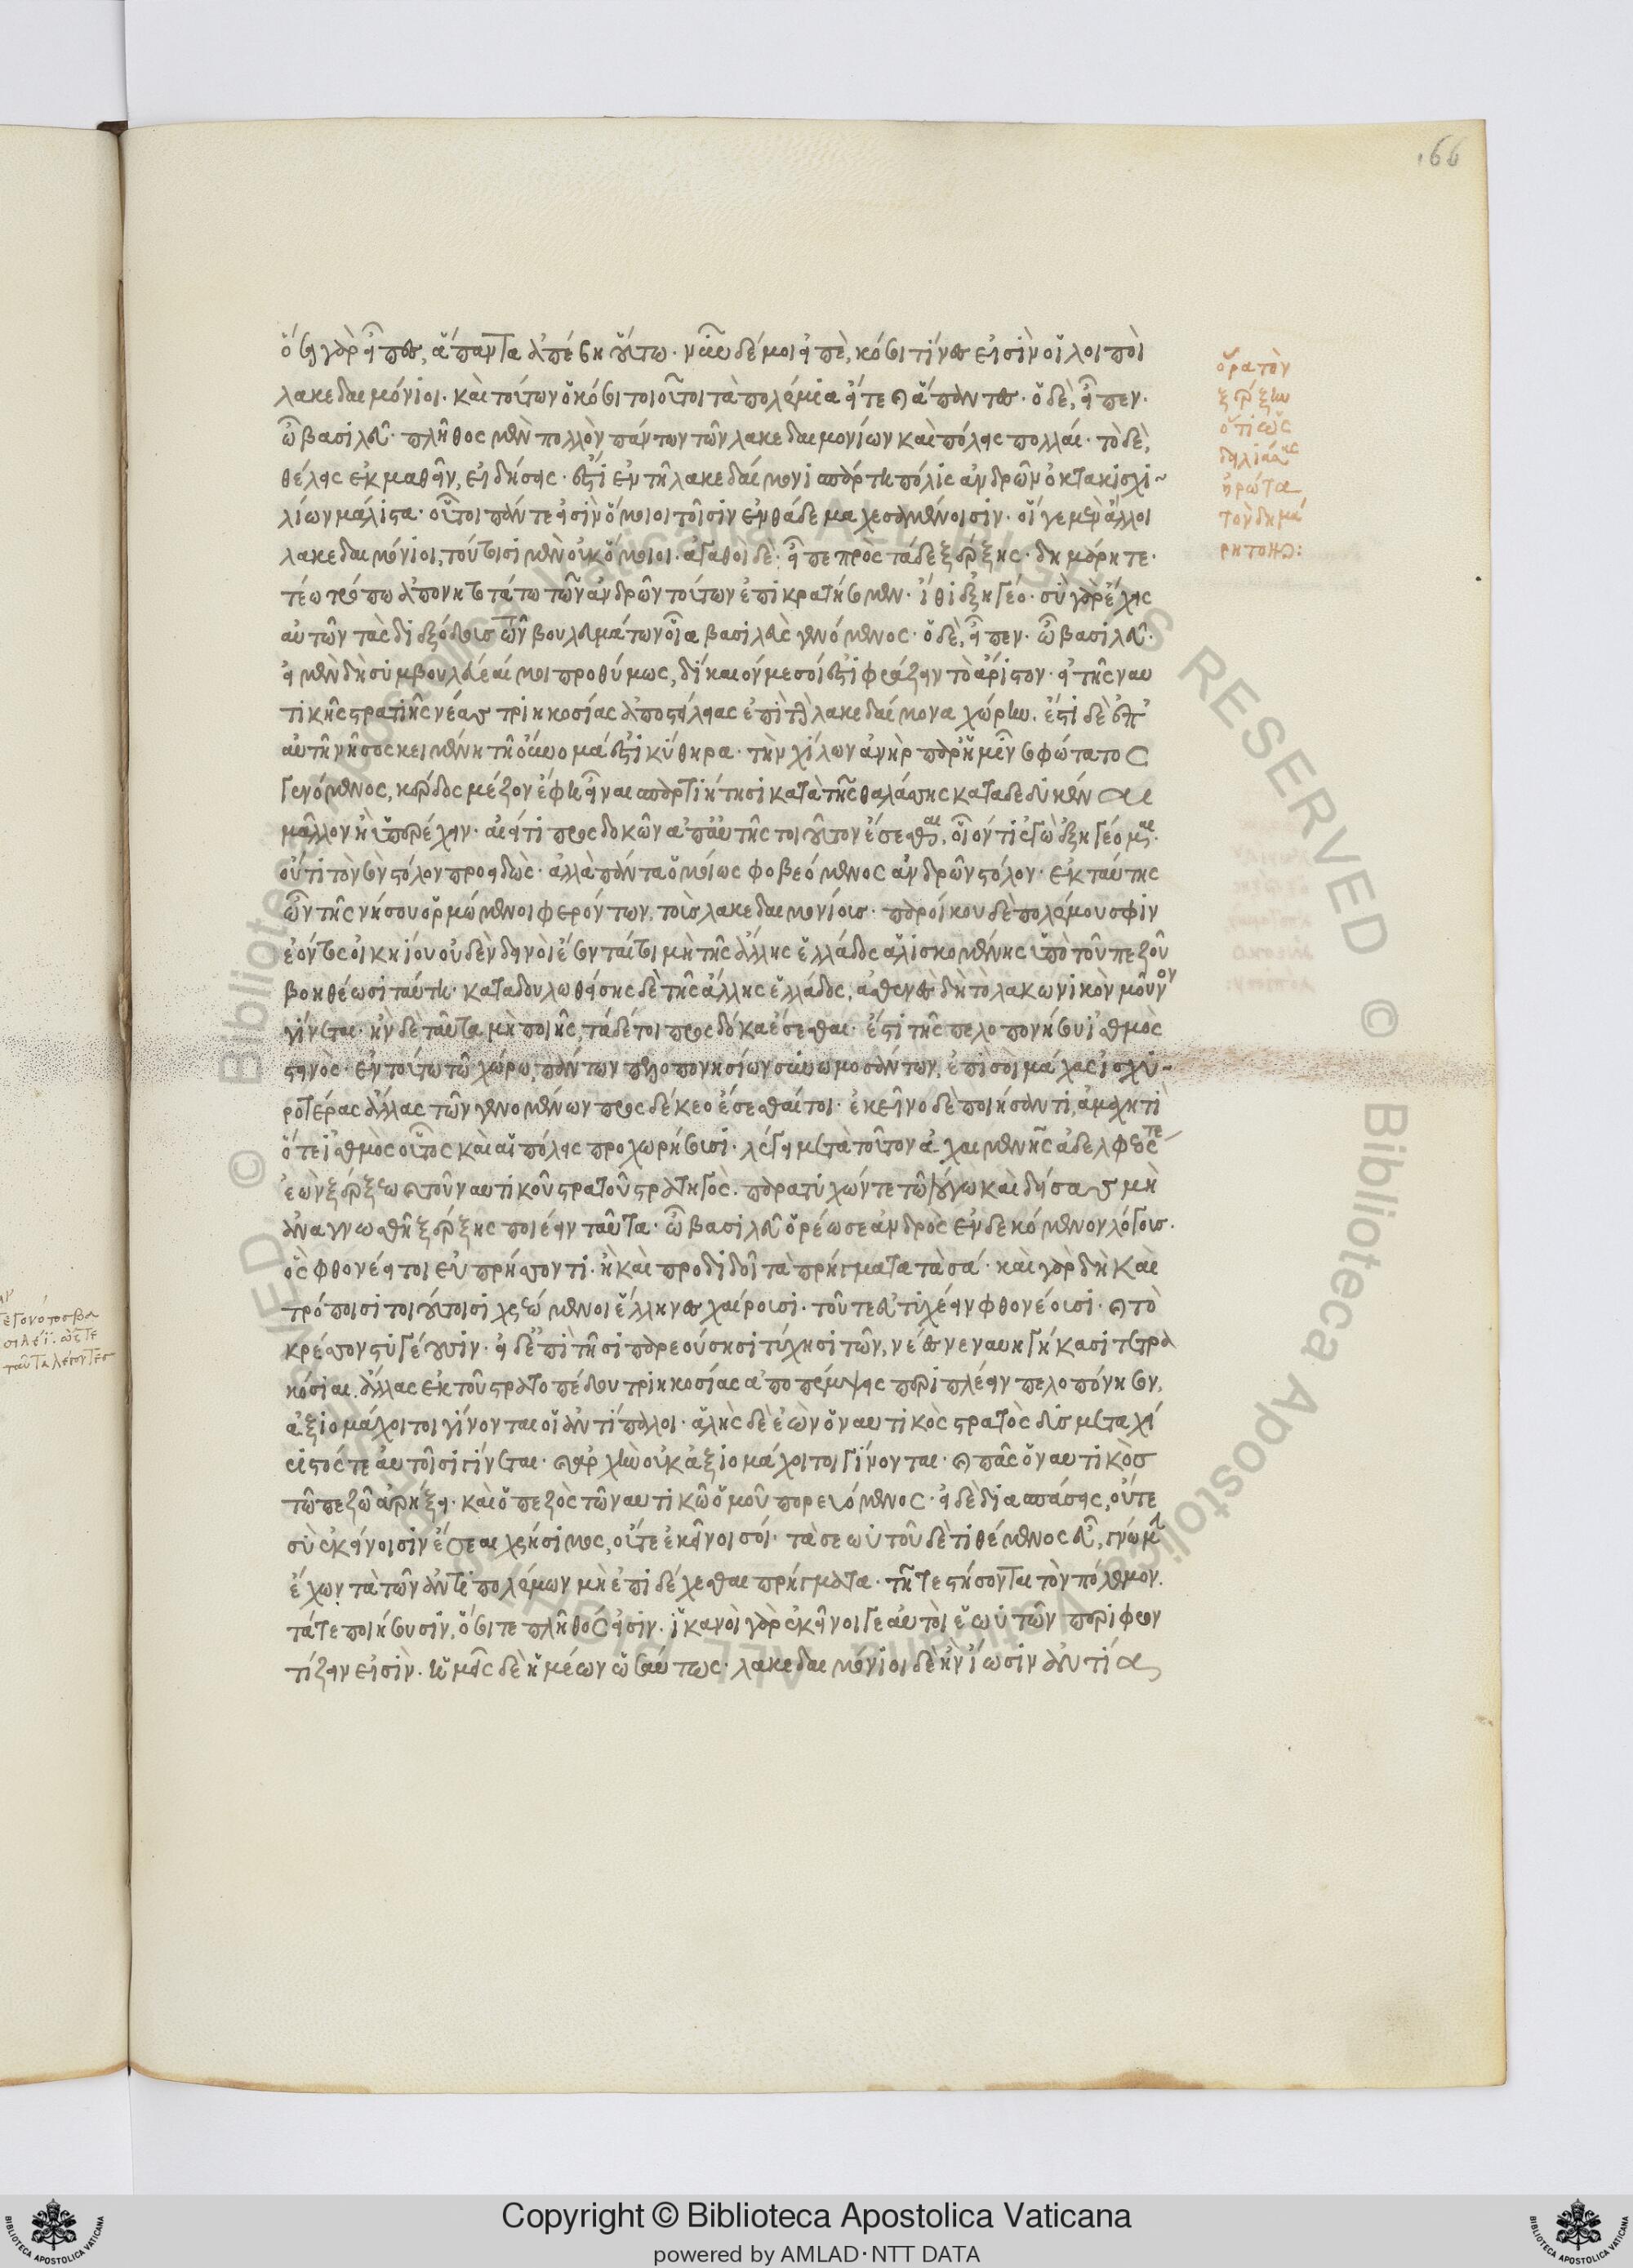 166
ὅσα γὰρ εἶπας, ἅπαντα ἀπέβη οὕτω· νῦν δέ μοι εἰπὲ, κόσοι τινές εἰσὶν οἱ λοιποὶ
λακεδαιμόνιοι· καὶ τούτων ὁκόσοι τοιοῦτοι τὰ πολέμια εἴτε καὶ ἅπαντες· ὁ δὲ, εἶπεν·
ὦ βασιλεῦ· πλῆθος μὲν πολλὸν πάντων τῶν λακεδαιμονίων καὶ πόλις πολλαί· τὸ δὲ,
θέλεις ἐκμαθεῖν, εἰδήσεις· ἔστι ἐν τῇ λακεδαίμονι σπάρτη πόλις ἀνδρῶν ὀκτακισχι-
λίων μάλιστα· οὗτοι πάντες εἰσὶν ὅμοιοι τοῖσιν ἐνθάδε μαχεσαμένοισιν· οἵ γε μὲν ἄλλοι
λακεδαιμόνιοι, τούτοισι μὲν οὐκ ὅμοιοι· ἀγαθοὶ δὲ· εἶπε πρὸς τάδε ξέρξης· δημάρητε·
τέω τρόπω ἀπονητότατω τῶν ἀνδρῶν τούτων ἐπικρατήσομεν· ἴθι ἐξηγέο· σὺ γὰρ ἔχεις
αὐτῶν τὰς διεξόδους τῶν βουλευμάτων οἷα βασιλεὺς γενόμενος· ὁ δὲ, εἶπεν· ὦ βασιλεῦ·
εἰ μὲν δὴ συμβουλεύεαί μοι προθύμως, δίκαιόν με σοί ἐστι φράζειν τὸ ἄριστον· εἰ τῆς ναυ
τικῆς στρατιῆς νέας τριηκοσίας ἀποστείλειας ἐπὶ τὴν λακεδαίμονα χώρην. ἔστι δὲ ἐπ'
αὐτῇ νῆσος κειμένη τῇ οὔνομά ἐστι κύθηρα· τὴν χίλων ἀνὴρ παρ' ἡμῖν σοφώτατος
γενόμενος, κέρδος μέζον ἔφη εἶναι σπαρτιήτησι κατὰ τῆς θαλάσσης καταδεδυκέναι
μᾶλλον ἢ ὑπερέχειν· αἰεί τι προσδοκῶν ἀπ' αὐτῆς τοιοῦτον ἔσεσθαι, οἷόν τι ἐγὼ ἐξηγέομαι·
οὔτι τὸν σὸν στόλον προειδὼς· ἀλλὰ πάντα ὁμοίως φοβεόμενος ἀνδρῶν στόλον· ἐκ ταύτης
ὦν τῆς νήσου ὁρμώμενοι φερόντων, τοὺς λακεδαιμονίους· παροίκου δὲ πολέμου σφιν
ἐόντος οἰκηίου οὐδὲν δεινοὶ ἔσονταί σοι μὴ τῆς ἄλλης ἑλλάδος ἁλισκομένης ὑπὸ τοῦ πεζοῦ
βοηθέωσι ταύτῃ· καταδουλωθείσης δὲ τῆς ἄλλης ἑλλάδος, ἀσθενὲς δὴ τὸ λακωνικὸν μοῦνον
γίνεται· ἢν δὲ ταῦτα μὴ ποιῇς, τάδε τοι προσδόκα ἔσεσθαι· ἔστι τῆς πελοποννήσου ἰσθμὸς
στεινὸς· ἐν τούτω τῶ χώρω, πάντων πελοποννησίων συνωμοσάντων, ἐπὶ σοὶ μάχας ἰσχυ-
ροτέρας ἄλλας τῶν γενομένων προσδέκεο ἔσεσθαί τοι· ἐκεῖνο δὲ ποιήσαντι, ἀμαχητὶ
ὅ τε ἰσθμὸς οὗτος καὶ αἱ πόλις προχωρήσουσι· λέγει μετὰ τοῦτον ἀχαιμένης ἀδελφεός τε
ἐὼν ξέρξεω καὶ τοῦ ναυτικοῦ στρατοῦ στρατηγὸς· παρατυχών τε τῶ λόγω καὶ δείσας μὴ
ἀναγνωσθῇ ξέρξης ποιέειν ταῦτα· ὦ βασιλεῦ ὁρέω σε ἀνδρὸς ἐνδεκόμενον λόγους.
ὃς φθονέει τοι εὖ πρήσσοντι· ἢ καὶ προδιδοῖ τὰ πρήγματα τὰ σά· καὶ γὰρ δὴ καὶ
τρόποισι τοιούτοισι χρεώμενοι ἕλληνες χαίρουσι· τοῦ τε εὐτυχέειν φθονέουσι· καὶ τὸ
κρέσσον στυγέουσιν· εἰ δ' ἐπὶ τῇσι παρεούσῃσι τύχησι τῶν, νέες νεναυηγήκασι τετρα
κόσιαι. ἄλλας ἐκ τοῦ στρατοπέδου τριηκοσίας ἀποπέμψεις περιπλέειν πελοπόννησον,
ἀξιόμαχοί τοι γίνονται οἱ ἀντίπαλοι· ἁλὴς δὲ ἐὼν ὁ ναυτικὸς στρατὸς δυσμεταχεί
ριστός τε αὐτοῖσι γίνεται· καὶ ἀρχὴν οὐκ ἀξιόμαχοί τοι γίνονται· καὶ πᾶς ὁ ναυτικὸς
τῶ πεζῶ ἀρήξει· καὶ ὁ πεζὸς τῶ ναυτικῶ ὁμοῦ πορευόμενος· εἰ δὲ διασπάσεις, οὔτε
σὺ ἐκείνοισιν ἔσεαι χρήσιμος, οὔτε ἐκεῖνοι σοί· τὰ σεωυτοῦ δὲ τιθέμενος εὖ, γνώμην
ἔχων τὰ τῶν ἀντιπολέμων μὴ ἐπιδέχεσθαι πρήγματα· τῇ τε στήσονται τὸν πόλεμον.
τά τε ποιήσουσιν, ὅσοι τε πλῆθός εἰσιν· ἱκανοὶ γὰρ ἐκεῖνοί γε αὐτοὶ ἑωυτῶν περὶ φρον
τίζειν εἰσὶν· ἡμεῖς δὲ ἡμέων ὡσαύτως· λακεδαιμόνιοι δὲ ἢν ἴωσιν ἀντία
ὅρα τὸν
ξέρξην
ὅτι ὡς
δηλιάσας
ἠρώτα
τὸν δημά
ρητον:
γέγονό τοσ βα
σιλεῖ· ὥστε
ταῦτα λέγοντες